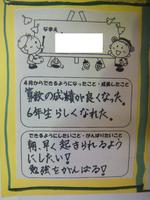 なまえ
4月からできるようになったこと・成長したこと
算数の成績が良くなった。
6年生らしくなれた。
できるようにしたいこと・がんばりたいこと
朝、早く起きられるように
したい!
勉強をがんばる!